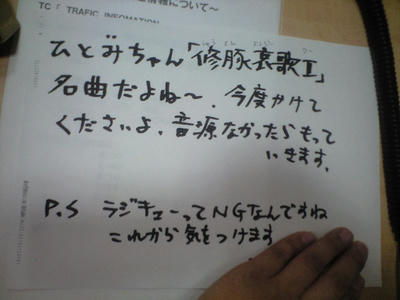 について～
TC「TRAFIC INFOMATION
ひとみちゃん「修豚哀歌I」
名曲だよね～、今度かけて
くださいよ、音源なかったらもって
いきます。
P.S ラジキューってNGなんですね
これから気をつけます